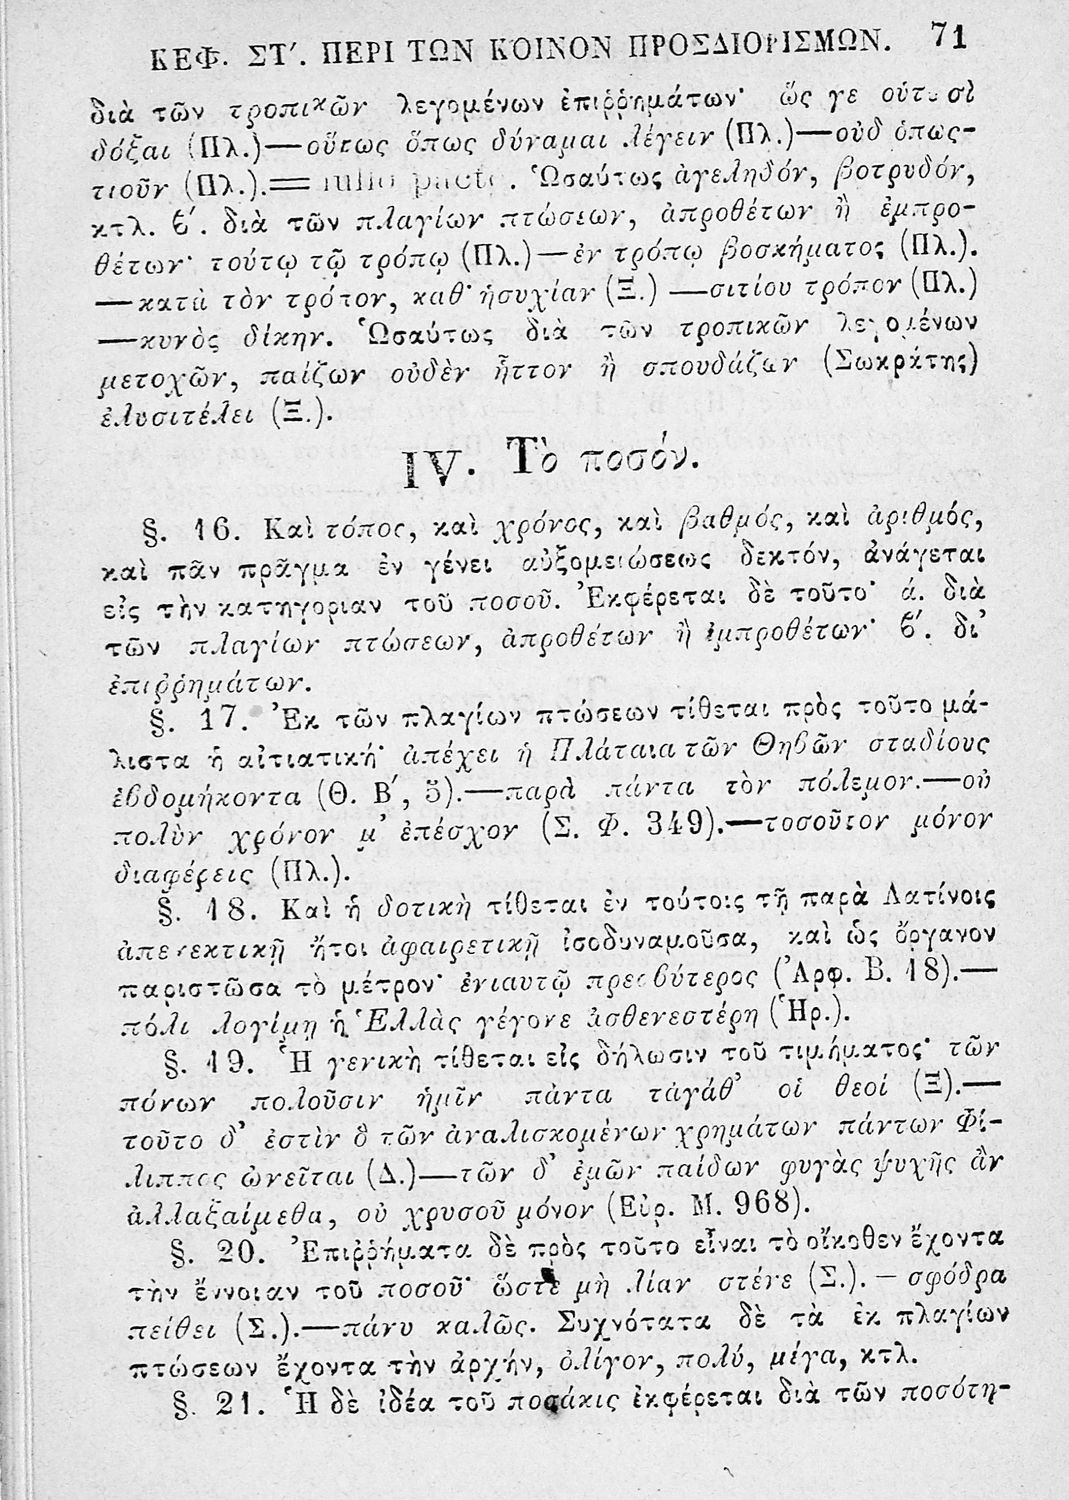 ΚΕΦ. ΣΤ'. ΠΕΡΙ ΤΩΝ ΚΟΙΝΟΝ ΠΡΟΣΔΙΟΡΙΣΜΩΝ. 71
διὰ τῶν τροπικῶν λεγομένων ἐπιῤῥημάτων· ὥς γε οὑτωσὶ
δόξαι (Πλ.)—οὕτως ὅπως δύναμαι λέγειν (Πλ.)—οὐδ ὁπως-
τιοῦν (Πλ.).= nullo pacto. Ὡσαύτως ἀγεληδόν, βοτρυδόν,
κτλ. β΄. διὰ τῶν πλαγίων πτώσεων, ἀπροθέτων ἢ ἐμπρο-
θέτων· τούτῳ τῷ τρόπῳ (Πλ.)—ἐν τρόπῳ βοσκήματος (Πλ.).
—κατὰ τὸν τρόπον, καθ' ἡσυχίαν (Ξ.) —σιτίου τρόπον (Πλ.)
—κυνὸς δίκην. Ὡσαύτως διὰ τῶν τροπικῶν λεγομένων
μετοχῶν, παίζων οὐδὲν ἧττον ἢ σπουδάζων (Σωκράτης)
ἐλυσιτέλει (Ξ.).
IV. Τὸ ποσόν.
§. 16. Καὶ τόπος, καὶ χρόνος, καὶ βαθμός, καὶ ἀριθμός,
καὶ πᾶν πρᾶγμα ἐν γένει αὐξομειώσεως δεκτόν, ἀνάγεται
εἰς τὴν κατηγοριαν τοῦ ποσοῦ. Ἐκφέρεται δὲ τοῦτο· ά. διὰ
τῶν πλαγίων πτώσεων, ἀπροθέτων ἢ ἐμπροθέτων· β΄. δι'
ἐπιῤῥημάτων.
§. 17. Ἐκ τῶν πλαγίων πτώσεων τίθεται πρὸς τοῦτο μά-
λιστα ἡ αἰτιατική· ἀπέχει ἡ Πλάταια τῶν Θηβῶν σταδίους
ἑβδομήκοντα (Θ. Β΄, 5).—παρὰ πάντα τὸν πόλεμον.—οὐ
πολὺν χρόνον μ' ἐπέσχον (Σ. Φ. 349).—τοσοῦτον μόνον
διαφέρεις (Πλ.).
§. 18. Καὶ ἡ δοτικὴ τίθεται ἐν τούτοις τῇ παρὰ Λατίνοις
ἀπενεκτικῇ ἤτοι ἀφαιρετικῇ ἰσοδυναμοῦσα, καὶ ὡς ὄργανον
παριστῶσα τὸ μέτρον· ἐνιαυτῷ πρεσβύτερος (Ἀρφ. Β. 18).—
πόλι λογίμῃ ἡ Ἑλλὰς γέγονε ἀσθενεστέρη (Ἡρ.).
§. 19. Ἡ γενικὴ τίθεται εἰς δήλωσιν τοῦ τιμήματος· τῶν
πόνων πολοῦσιν ἡμῖν πάντα τἀγάθ' οἱ θεοί (Ξ).—
τοῦτο δ' ἐστὶν ὃ τῶν ἀναλισκομένων χρημάτων πάντων Φί-
λιππος ὠνεῖται (Δ.)—τῶν δ' ἐμῶν παίδων φυγὰς ψυχῆς ἂν
ἀλλαξαίμεθα, οὐ χρυσοῦ μόνον (Εὐρ. Μ. 968).
§. 20. Ἐπιῤῥήματα δὲ πρὸς τοῦτο εἶναι τὸ οἴκοθεν ἔχοντα
τὴν ἔννοιαν τοῦ ποσοῦ· ὥστε μὴ λίαν στένε (Σ.).—σφόδρα
πείθει (Σ.).—πάνυ καλῶς. Συχνότατα δὲ τὰ ἐκ πλαγίων
πτώσεων ἔχοντα τὴν ἀρχήν, ὀλίγον, πολύ, μέγα, κτλ.
§. 21. Ἡ δὲ ἰδέα τοῦ ποσάκις ἐκφέρεται διὰ τῶν ποσότη-